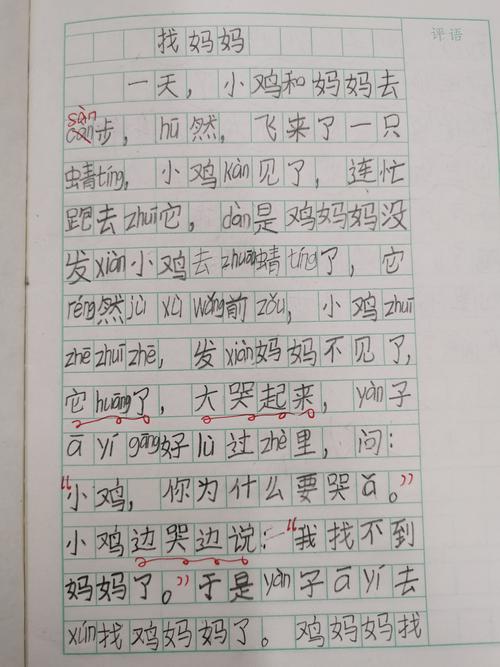 评语
找妈妈
一天，小鸡和妈妈去
sàn
càn步，hū然，飞来了一只
蜻tíng，小鸡kàn见了，连忙
跑去zhuī它，dàn是鸡妈妈没
发xiàn小鸡去zhuāng蜻tíng了，它
réng然jù xù wǎng前zǒu，小鸡zhuī
zhē zhuī zhē，发xiàn妈妈不见了，
它huāng了，大哭起来，yàn子
ā yí gāng好lù过zhè里，问：
“小鸡，你为什么要哭ǎ。”
小鸡边哭边说：“我找不到
妈妈了。”于是yàn子ā yí去
xún找鸡妈妈了。鸡妈妈找